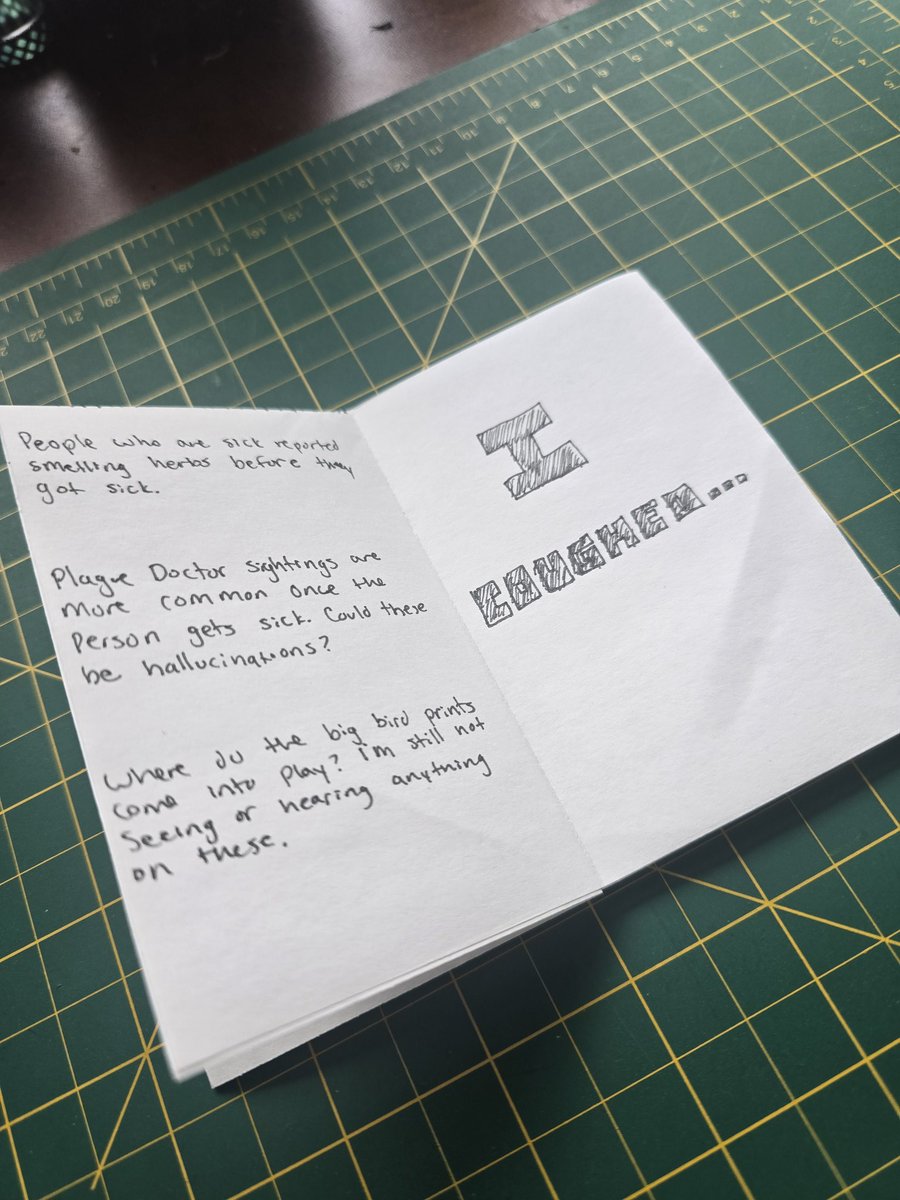 People who are sick reported
smelling herbs before they
got sick.
Plague Doctor sightings are
more common once the
person gets sick. Could these
be hallucinations?
Where do the big bird prints
come into play? I'm still not
seeing or hearing anything
on these.
I
COUGHED...